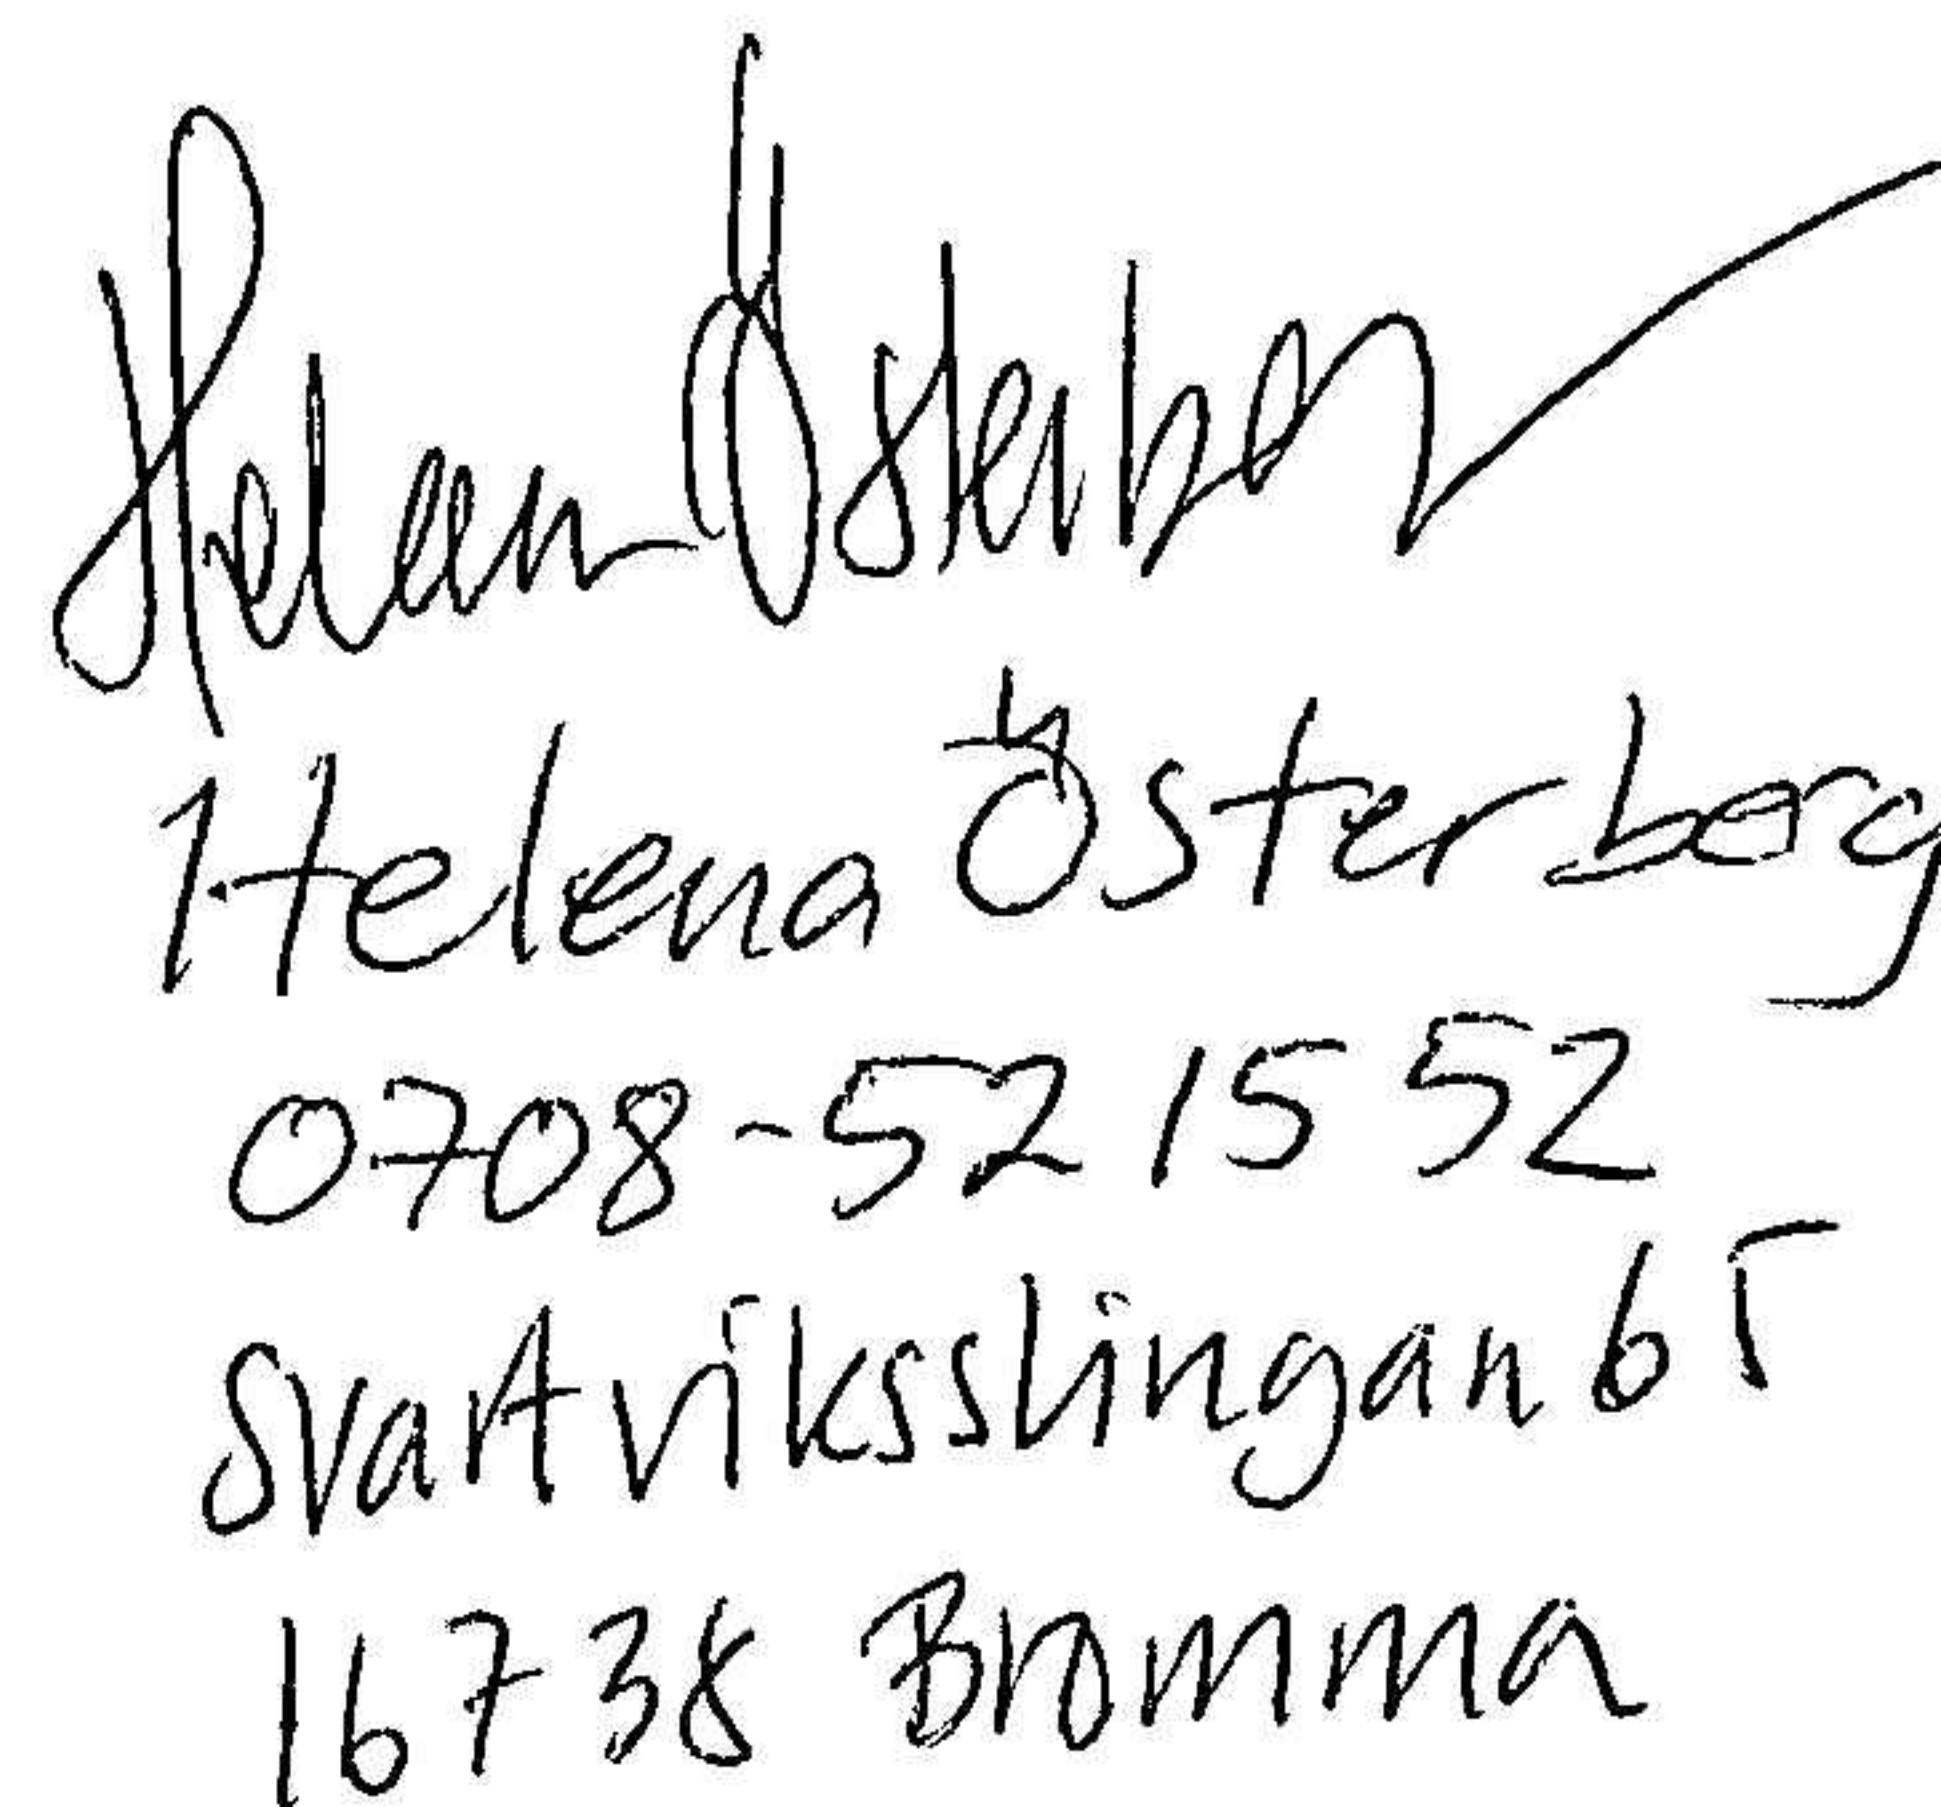 Helena Österberg
Helena Österberg
0708-52 15 52
Svartviksslingan 65
16738 Bromma